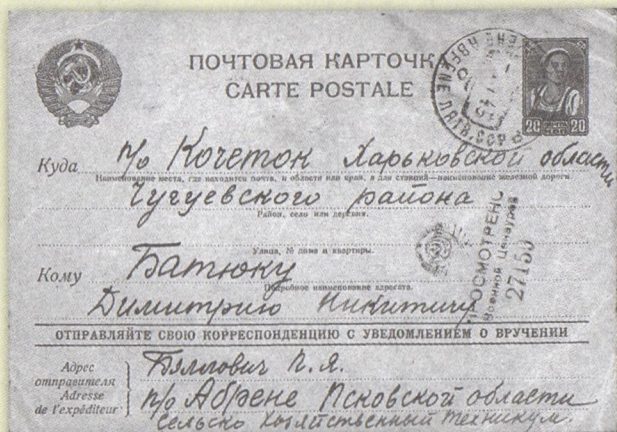 ПОЧТОВАЯ КАРТОЧКА
CARTE POSTALE
АБРЕНЕ ЛАТВ.ССР
20 20
Куда п/о Кочеток Харьковской области
Наименование места, где находится почта, и области или края, а для станций—наименование железной дороги.
Чугуевского района
Район, село или деревня.
Улица, № дома и квартиры.
Кому Батюку
Подробное наименование адресата.
Димитрию Никитичу
ПРОСМОТРЕНО
Военной Цензурой
27155
ОТПРАВЛЯЙТЕ СВОЮ КОРРЕСПОНДЕНЦИЮ С УВЕДОМЛЕНИЕМ О ВРУЧЕНИИ
Адрес отправителя
Adresse de l'expéditeur
П.Я.
п/о Абрене Псковской области
Сельско Хозяйственный Техникум.